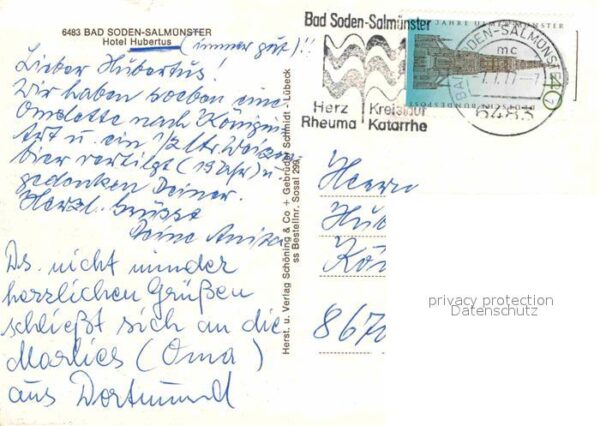 6483 BAD SODEN-SALMÜNSTER
Hotel Hubertus
(immer gut)!!
Lieber Hubertus!
Wir haben soeben eine
Omelette nach Königin
Art u. ein 1/2 Ltr. Weizen
bier vertilgt (19 Uhr) u.
gedenken Deiner.
Herzl. Grüsse
Deine Anita
Ds. nicht minder
herzlichen Grüßen
schließt sich an die
Marlies (Oma)
aus Dortmund
Herst. u. Verlag Schöning & Co + Gebrüder Schmidt - Lübeck
ss Bestellnr. Sosal 299
Bad Soden-Salmünster
Herz
Rheuma
Kreislauf
Katarrhe
JAHRE ULMER MÜNSTER
DEUTSCHE BUNDESPOST
40
BAD SODEN-SALMÜNST
mc
6483
Herrn
Hub
Kön
8670
privacy protection
Datenschutz